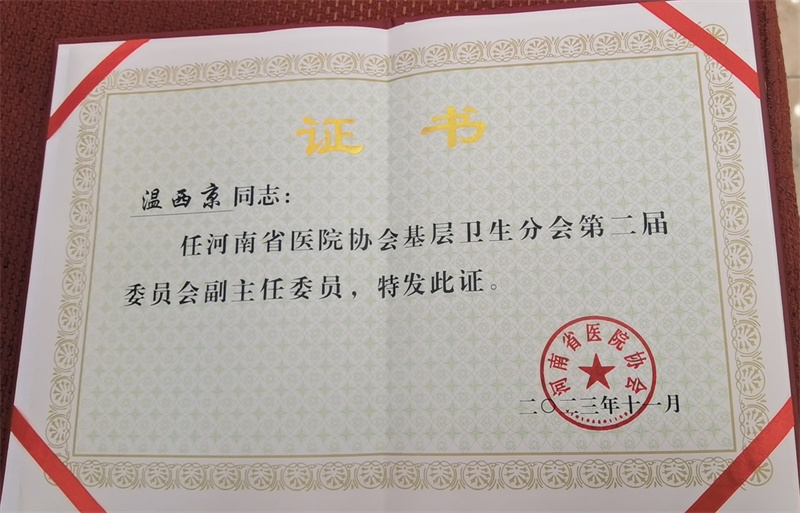 证书
温西京同志：
任河南省医院协会基层卫生分会第二届
委员会副主任委员，特发此证。
河南省医院协会
二〇二三年十一月